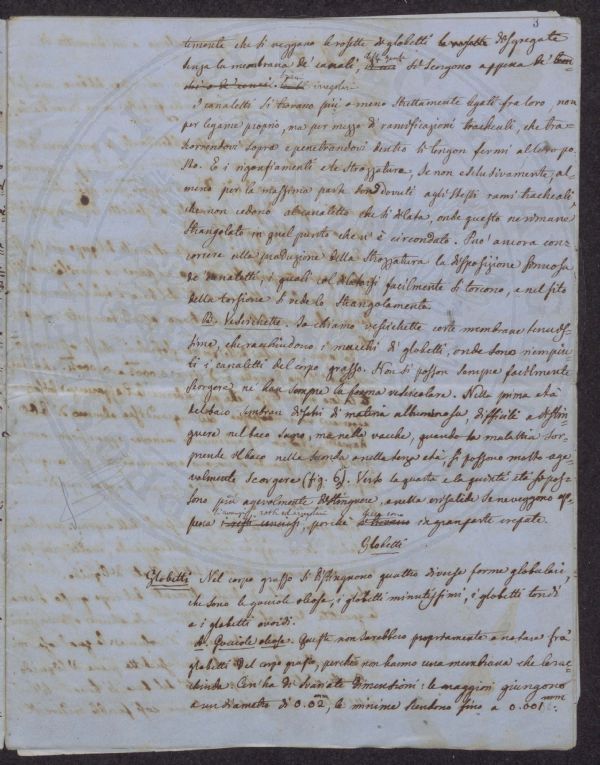 3
temente che si veggano le rosette di globetti disgregate
senza la membrana de' canali, si scorgono appena de'
irregolari
I canaletti si trovano più o meno strettamente legati fra loro, non
per legame proprio, ma per mezzo di ramificazioni tracheali, che tra-
scorrendovi sopra e penetrandovi dentro li tengon fermi al loro po-
sto. E i rigonfiamenti e le strozzature, se non esclusivamente, al-
meno per la massima parte son dovuti agli stessi rami tracheali,
che non cedono al canaletto che si dilata, onde questo ne rimane
strangolato in quel punto che n' è circondato. Può ancora con-
correre alla produzione della strozzatura la disposizione sinuosa
de' canaletti, i quali col dilatarsi facilmente si torcono, e nel sito
della torsione si vede lo strangolamento.
B. Vescichette. Io chiamo vescichette certe membrane tenuis-
sime, che racchiudono i mucchi di globetti, onde sono riempiu-
ti i canaletti del corpo grasso. Non si posson sempre facilmente
scorgere nè han sempre la forma vescicolare. Nella prima età
del baco sembran dischi di materia albuminosa, difficili a distin-
guere nel baco sano, ma nelle vacche, quando la malattia sor-
prende il baco nella seconda o nella terza età, si possono molto age-
volmente scorgere (fig. 6). Verso la quarta e la quinta età si pos-
sono più agevolmente distinguere, e nella crisalide se ne veggono ap-
pena perchè in gran parte crepate.
Globetti
Globetti Nel corpo grasso si distinguono quattro diverse forme globulari,
che sono le gocciole oleose, i globetti minutissimi, i globetti tondi
e i globetti ovoidi.
A. Gocciole oleose. Queste non sarebbero propriamente a notare fra'
globetti del corpo grasso, perchè non hanno una membrana che le rac-
chiuda. Cen'ha di svariate dimensioni: le maggiori giungono
a un diametro di 0.02 mm, le minime scendono fino a 0.001 mm